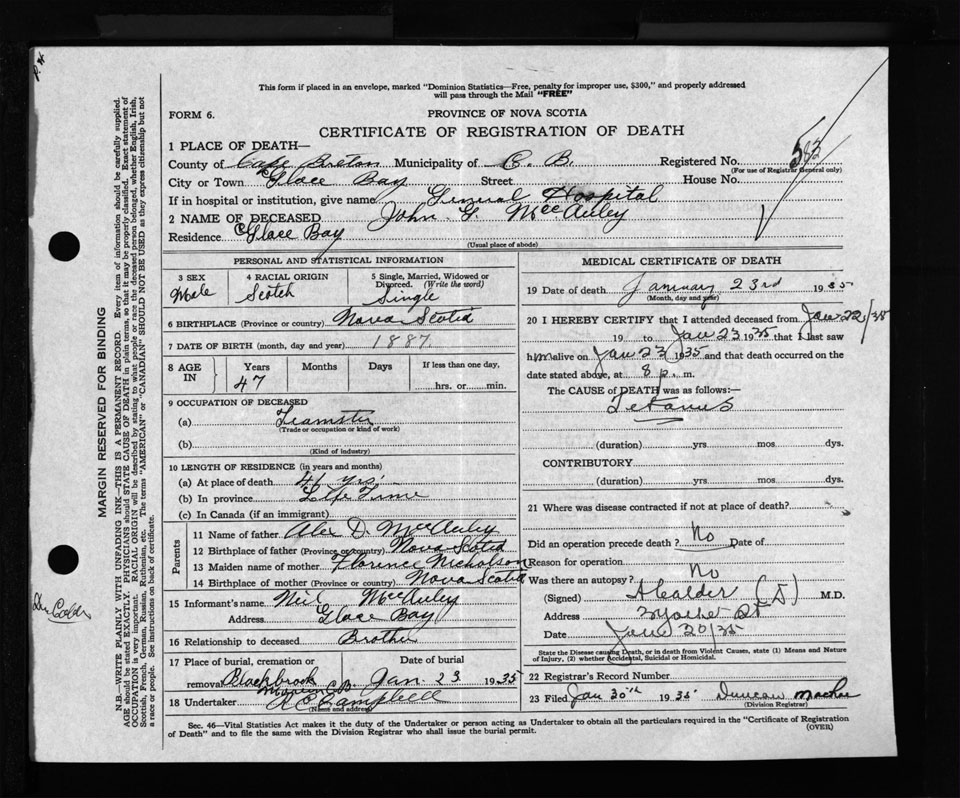 This form if placed in an envelope, marked "Dominion Statistics—Free, penalty for improper use, $300," and properly addressed
will pass through the Mail "FREE"
FORM 6.
PROVINCE OF NOVA SCOTIA
CERTIFICATE OF REGISTRATION OF DEATH
583
1 PLACE OF DEATH—
County of Cape Breton Municipality of C. B. Registered No.
(For use of Registrar General only)
City or Town Glace Bay Street House No.
If in hospital or institution, give name General Hospital
2 NAME OF DECEASED John G. MacAuley
Residence Glace Bay
(Usual place of abode)
PERSONAL AND STATISTICAL INFORMATION
3 SEX Male
4 RACIAL ORIGIN Scotch
5 Single, Married, Widowed or Divorced. (Write the word) Single
6 BIRTHPLACE (Province or country) Nova Scotia
7 DATE OF BIRTH (month, day and year) 1887
8 AGE IN Years 47 Months Days If less than one day, hrs. or min.
9 OCCUPATION OF DECEASED
(a) Teamster
(Trade or occupation or kind of work)
(b)
(Kind of industry)
10 LENGTH OF RESIDENCE (in years and months)
(a) At place of death 41 yrs.
(b) In province Life Time
(c) In Canada (if an immigrant)
Parents
11 Name of father Alex D. MacAuley
12 Birthplace of father (Province or country) Nova Scotia
13 Maiden name of mother Florence Nicholson
14 Birthplace of mother (Province or country) Nova Scotia
15 Informant's name Neil MacAuley
Address Glace Bay
16 Relationship to deceased Brother
17 Place of burial, cremation or removal Blackbrook
Date of burial Jan. 23 1935
18 Undertaker R C Campbell
(Name and address)
MEDICAL CERTIFICATE OF DEATH
19 Date of death January 23rd 1935
(Month, day and year)
20 I HEREBY CERTIFY that I attended deceased from Jan 22/35
19 to Jan 23 1935 that I last saw
him alive on Jan 23 1935 and that death occurred on the
date stated above, at 8 p. m.
The CAUSE of DEATH was as follows:—
Tetanus
(duration) yrs mos dys.
CONTRIBUTORY
(duration) yrs. mos. dys.
21 Where was disease contracted if not at place of death?
Did an operation precede death? No Date of
Reason for operation
Was there an autopsy? No
(Signed) A Calder M.D.
Address
Date Jan 30/35
State the Disease causing Death, or in death from Violent Causes, state (1) Means and Nature
of Injury, (2) whether Accidental, Suicidal or Homicidal.
22 Registrar's Record Number
23 Filed Jan 30th 1935 Duncan
(Division Registrar)
Sec. 46—Vital Statistics Act makes it the duty of the Undertaker or person acting as Undertaker to obtain all the particulars required in the "Certificate of Registration
of Death" and to file the same with the Division Registrar who shall issue the burial permit.
(OVER)
MARGIN RESERVED FOR BINDING
N.B.—WRITE PLAINLY WITH UNFADING INK—THIS IS A PERMANENT RECORD. Every item of information should be carefully supplied.
AGE should be stated EXACTLY. PHYSICIANS should STATE CAUSE OF DEATH in plain terms, so that it may be properly classified. Exact statement of
OCCUPATION is very important. RACIAL ORIGIN will be described by stating to what people or race the deceased person belonged, whether English, Irish,
Scottish, French, German, Russian, Ruthenian, etc. The terms "AMERICAN" or "CANADIAN" SHOULD NOT BE USED as they express citizenship but not
a race or people. See instructions on back of certificate.